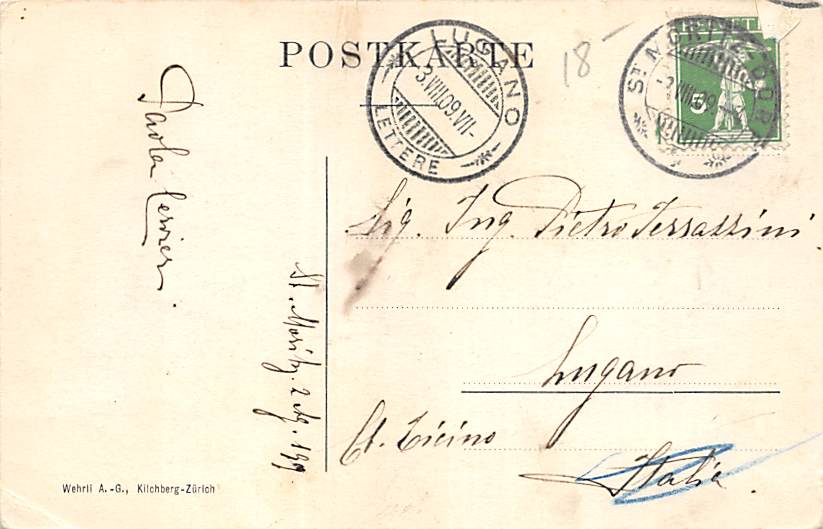 POSTKARTE
18 -
LUGANO
3.VIII.09.VII-
LETTERE
ST MORITZ-DORF
VIII.09
5
Paola
St. Moritz. 2 Ag. 1909
Sig. Ing. Pietro Terrazzini
Lugano
Ct. Ticino
Italia.
Wehrli A.-G., Kilchberg-Zürich